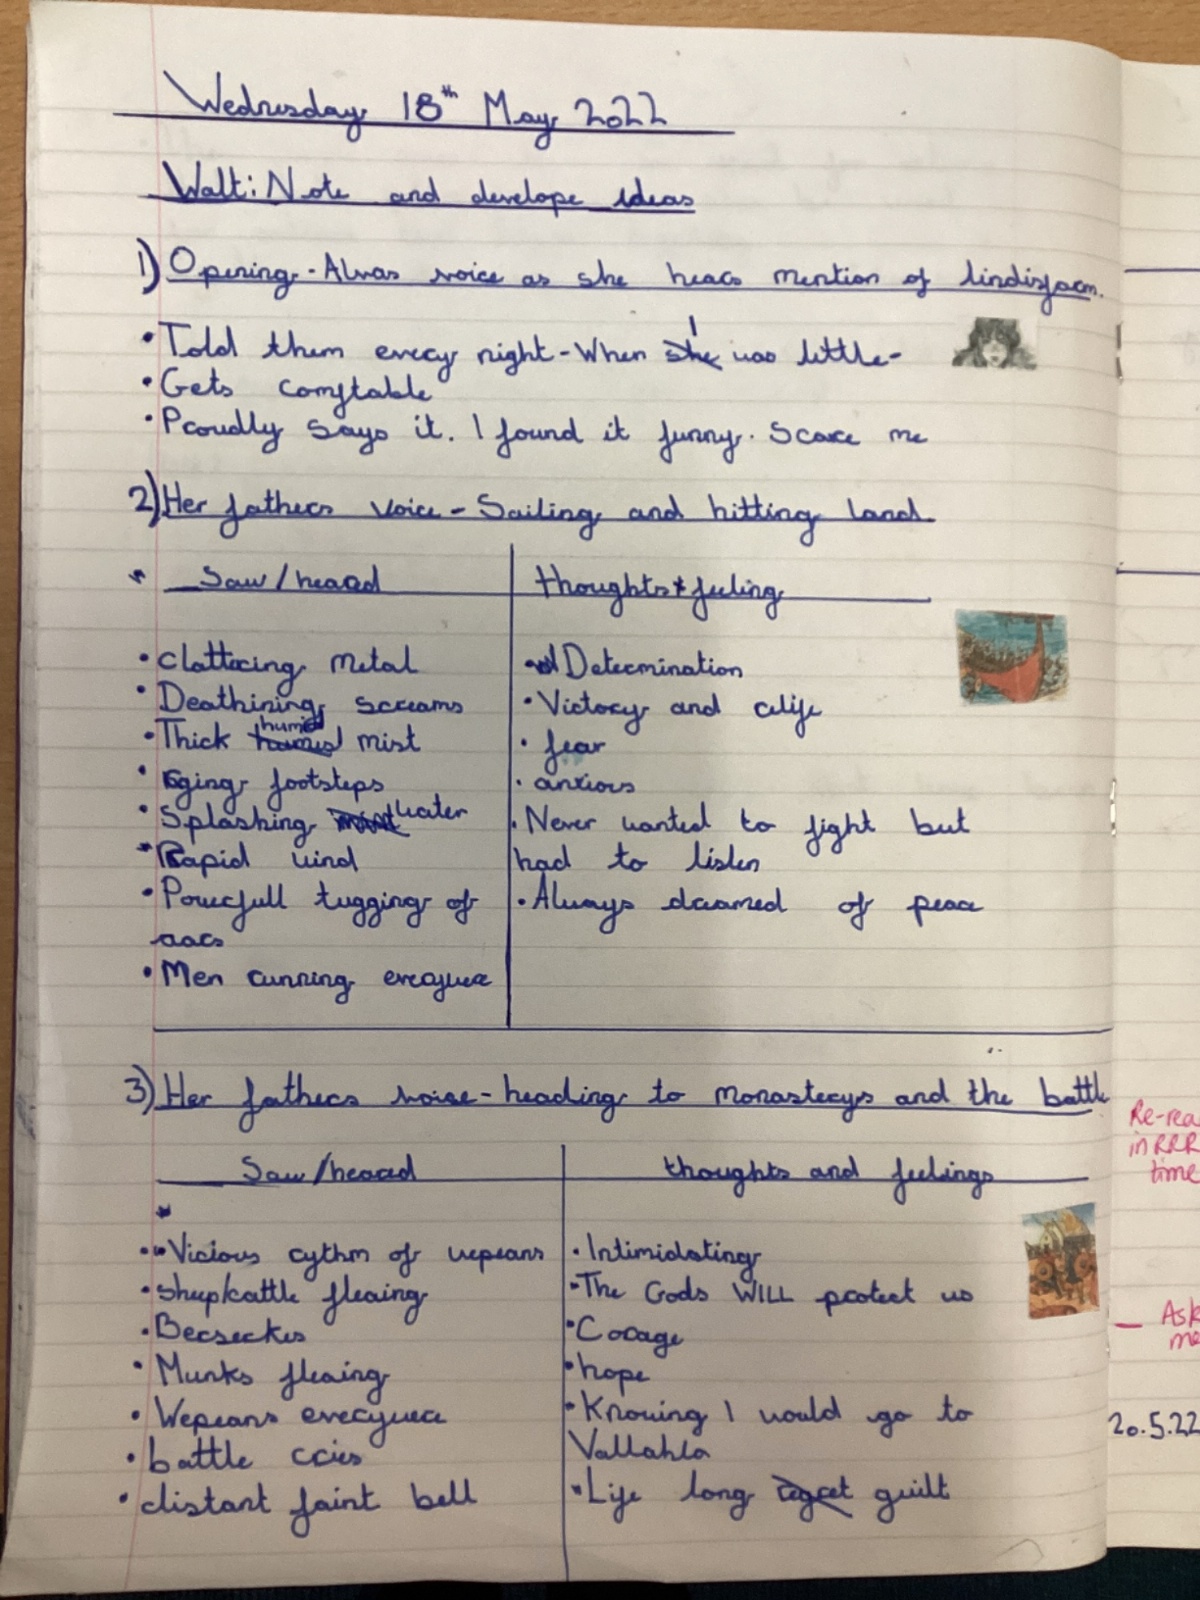 Wednesday 18th May 2022
Walt: Note and develope ideas
1) Opening - Alvas voice as she hears mention of lindisfarn.
• Told them every night - When I was little -
• Gets comftable
• Proudly says it. I found it funny. Scare me
2) Her fathers voice - Sailing and hitting land
Saw/heard
• clattering metal
• Deathining screams
• Thick humid mist
footsteps
• Splashing water
• Rapid wind
• Powerfull tugging of
oars
• Men running everywere
thoughts & feeling
• Determination
• Victory and
• fear
• anxious
• Never wanted to fight but
had to listen
• Always dramed of peace
3) Her fathers voice - heading to monasterys and the battle
Saw/heard
• Vicious rythm of wepeans
• sheup/cattle fleaing
• Berserkes
• Munks fleaing
• Wepeans everywere
• battle cries
• distant faint bell
thoughts and feelings
• Intimidating
• The Gods WILL protect us
• Corage
• hope
• Knowing I would go to
Vallahla
• Life long regret guilt
Re-rea
in RRR
time
— Ask
me
20.5.22